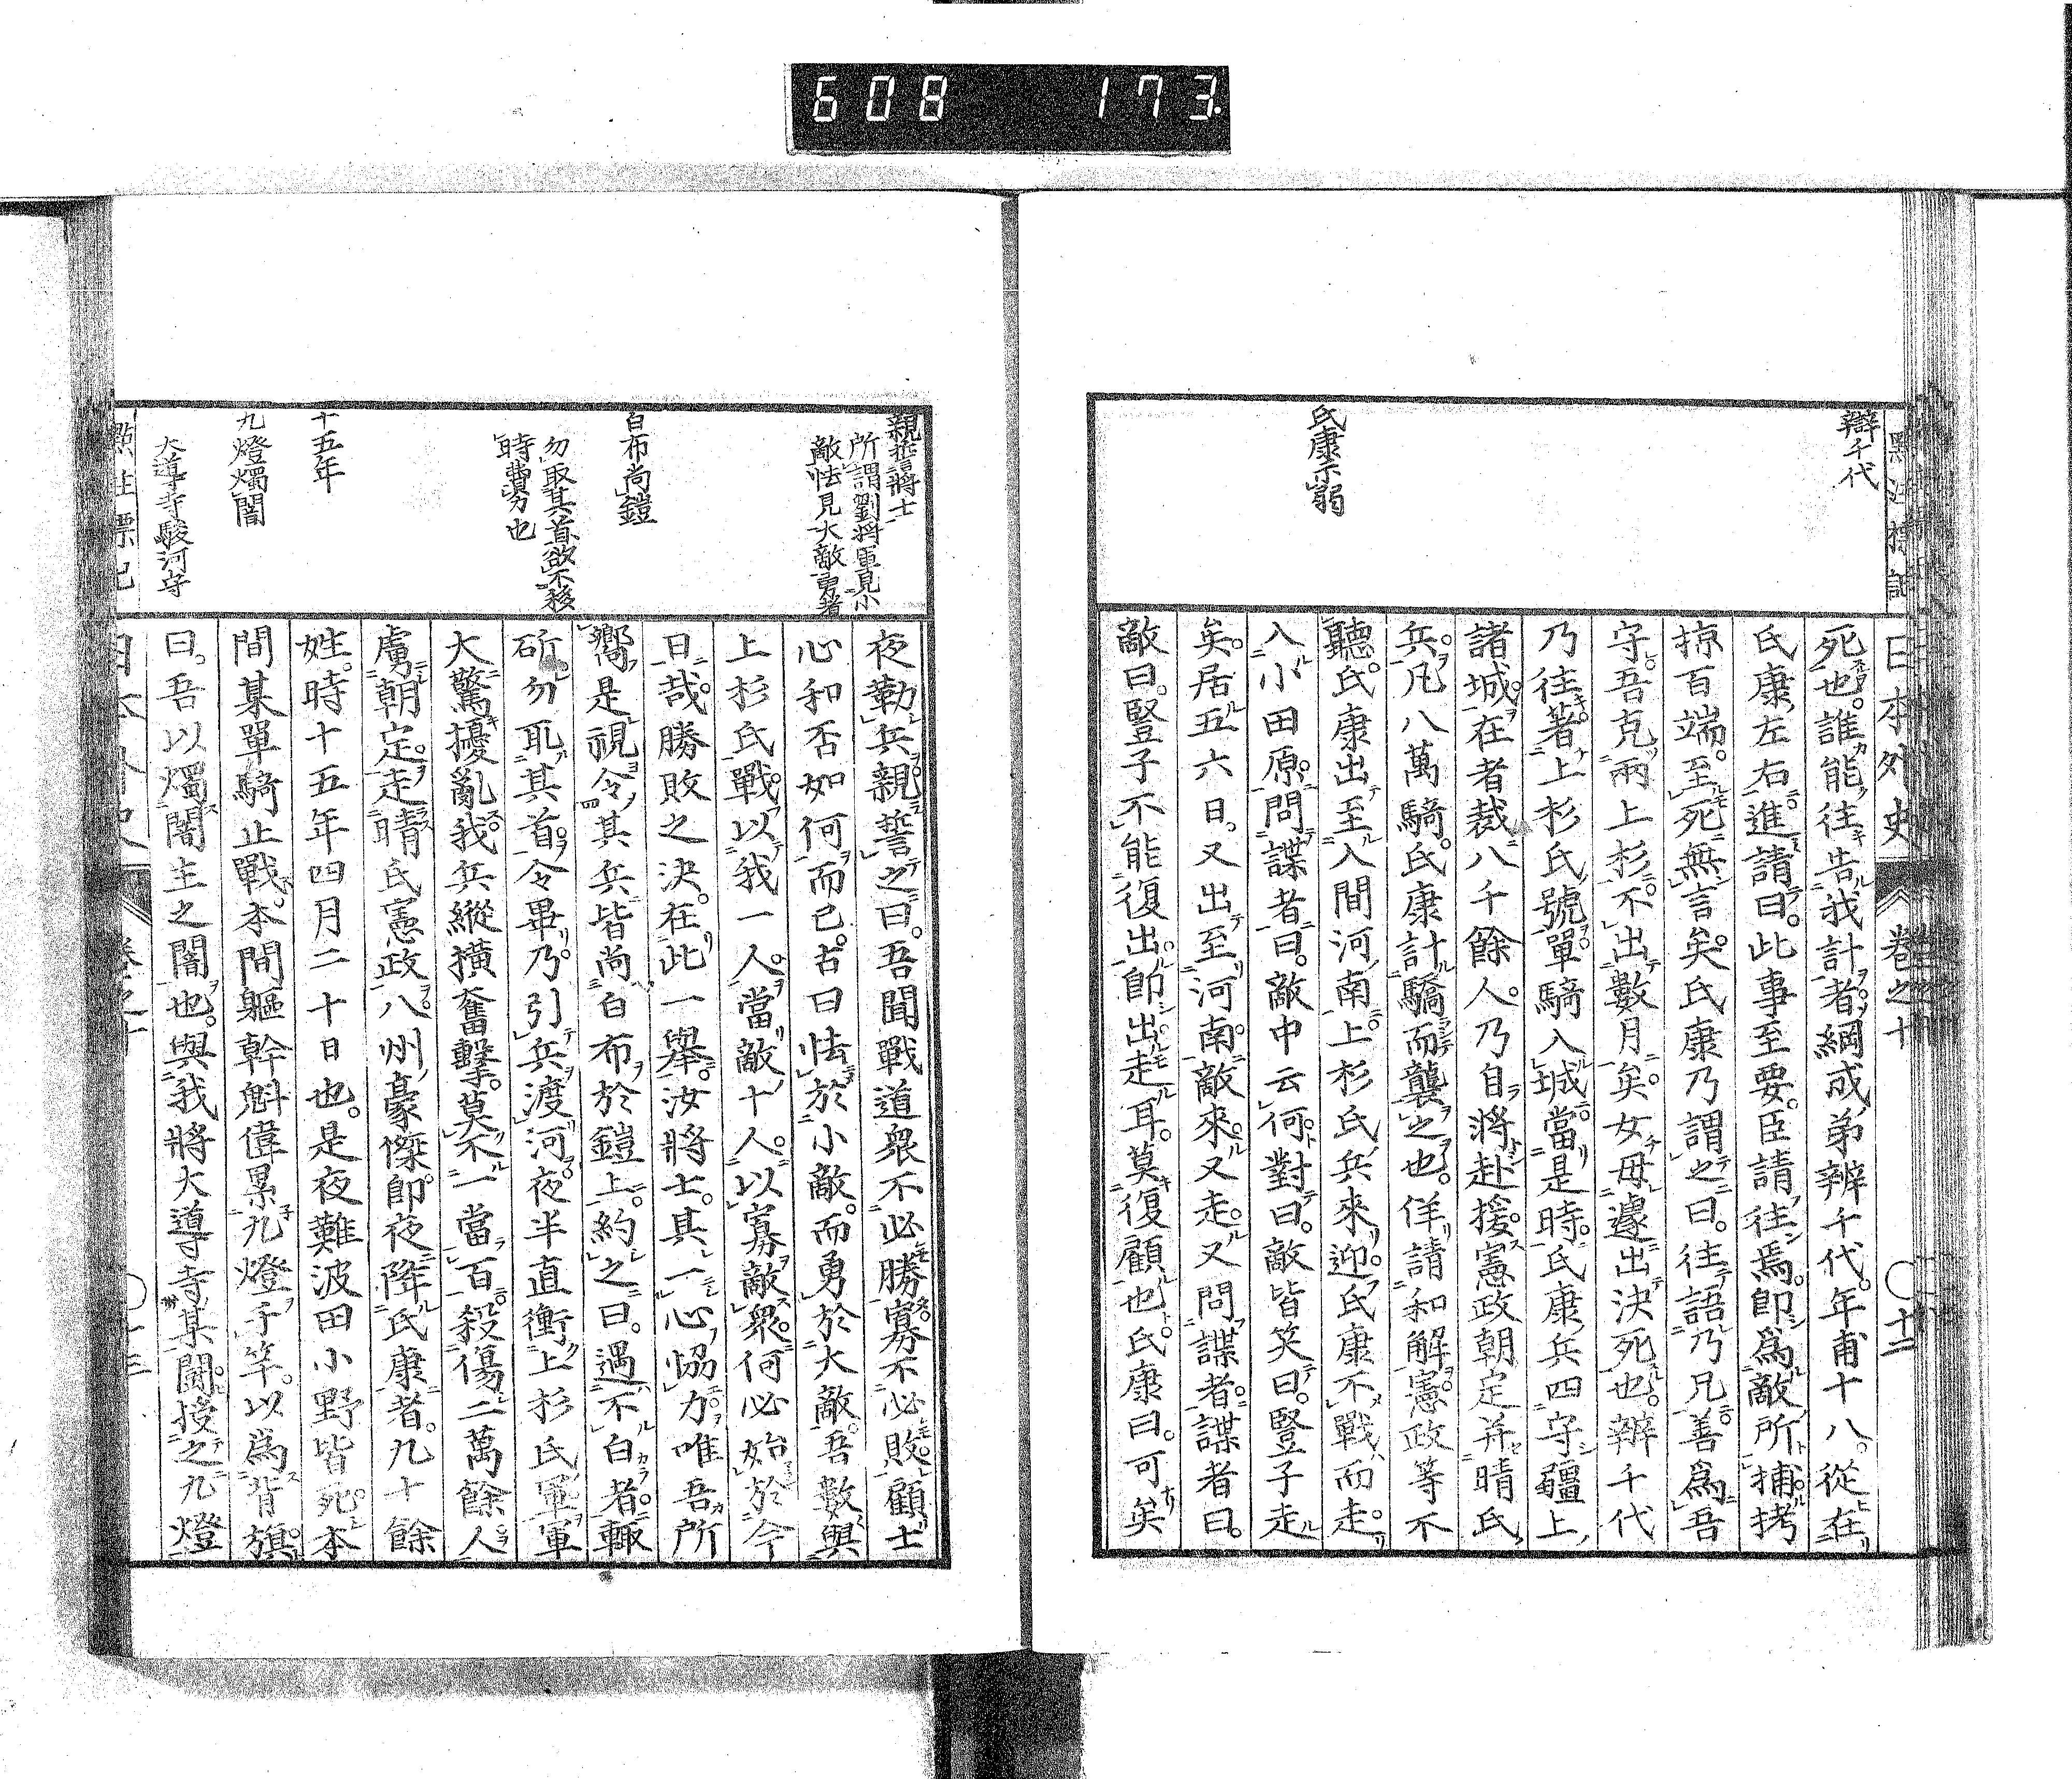 608 173
點註標記
辯千代
氏康示弱
日本外史 卷之十 〇十二
死也。誰能往告我計者。綱成弟辨千代。年甫十八。從在
氏康左右。進請曰。此事至要。臣請往焉。卽爲敵所捕拷
掠百端。至死無言矣。氏康乃謂之曰。往語乃兄。善爲吾
守。吾克兩上杉。不出數月矣。女毋遽出決死也。辨千代
乃往。著上杉氏號。單騎入城。當是時。氏康兵四守疆上。
諸城在者裁八千餘人。乃自將赴援。憲政朝定并晴氏
兵。凡八萬騎。氏康計驕而襲之也。佯請和解。憲政等不
聽。氏康出至入間河南。上杉氏兵來迎。氏康不戰而走。
入小田原。問諜者曰。敵中云何。對曰。敵皆笑曰。豎子走
矣。居五六日。又出至河南。敵來。又走。又問諜者。諜者曰。
敵曰。豎子不能復出。卽出走耳。莫復顧也。氏康曰。可矣
親誓將士
所謂劉將軍見小
敵怯見大敵勇者
白布尚鎧
勿取其首欲不移
時費勞也
十五年
九燈燭闇
大導寺駿河守
夜勒兵。親誓之曰。吾聞戰道衆不必勝。寡不必敗。顧士
心和否如何而已。古曰。怯於小敵。而勇於大敵。吾數與
上杉氏戰。以我一人。當敵十人。以寡敵衆。何必始於今
日哉。勝敗之決。在此一擧。汝將士。其一心協力。唯吾所
嚮是視。令其兵皆尚白布於鎧上。約之曰。遇不白者。輙
斫。勿取其首。令畢。乃引兵渡河。夜半直衝上杉氏軍。軍
大驚擾亂。我兵縱橫奮擊。莫不一當百。殺傷二萬餘人
虜朝定。走晴氏憲政。八州豪傑。卽夜降氏康者。九十餘
姓。時十五年四月二十日也。是夜難波田小野皆死。本
間某單騎止戰。本間軀幹魁偉。累九燈于竿。以爲背旗。
曰。吾以燭闇主之闇也。與我將大導寺某鬪。授之九燈